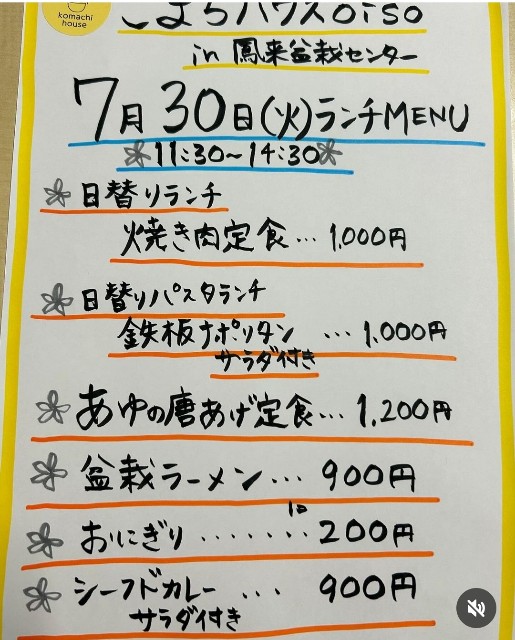 komachi
house
こまちハウスoiso
in 鳳来盆栽センター
7月30日(火)ランチMENU
11:30〜14:30
日替りランチ
焼き肉定食…1,000円
日替りパスタランチ
鉄板ナポリタン …1,000円
サラダ付き
あゆの唐あげ定食…1,200円
盆栽ラーメン… 900円
おにぎり……‥1コ 200円
シーフドカレー … 900円
サラダ付き